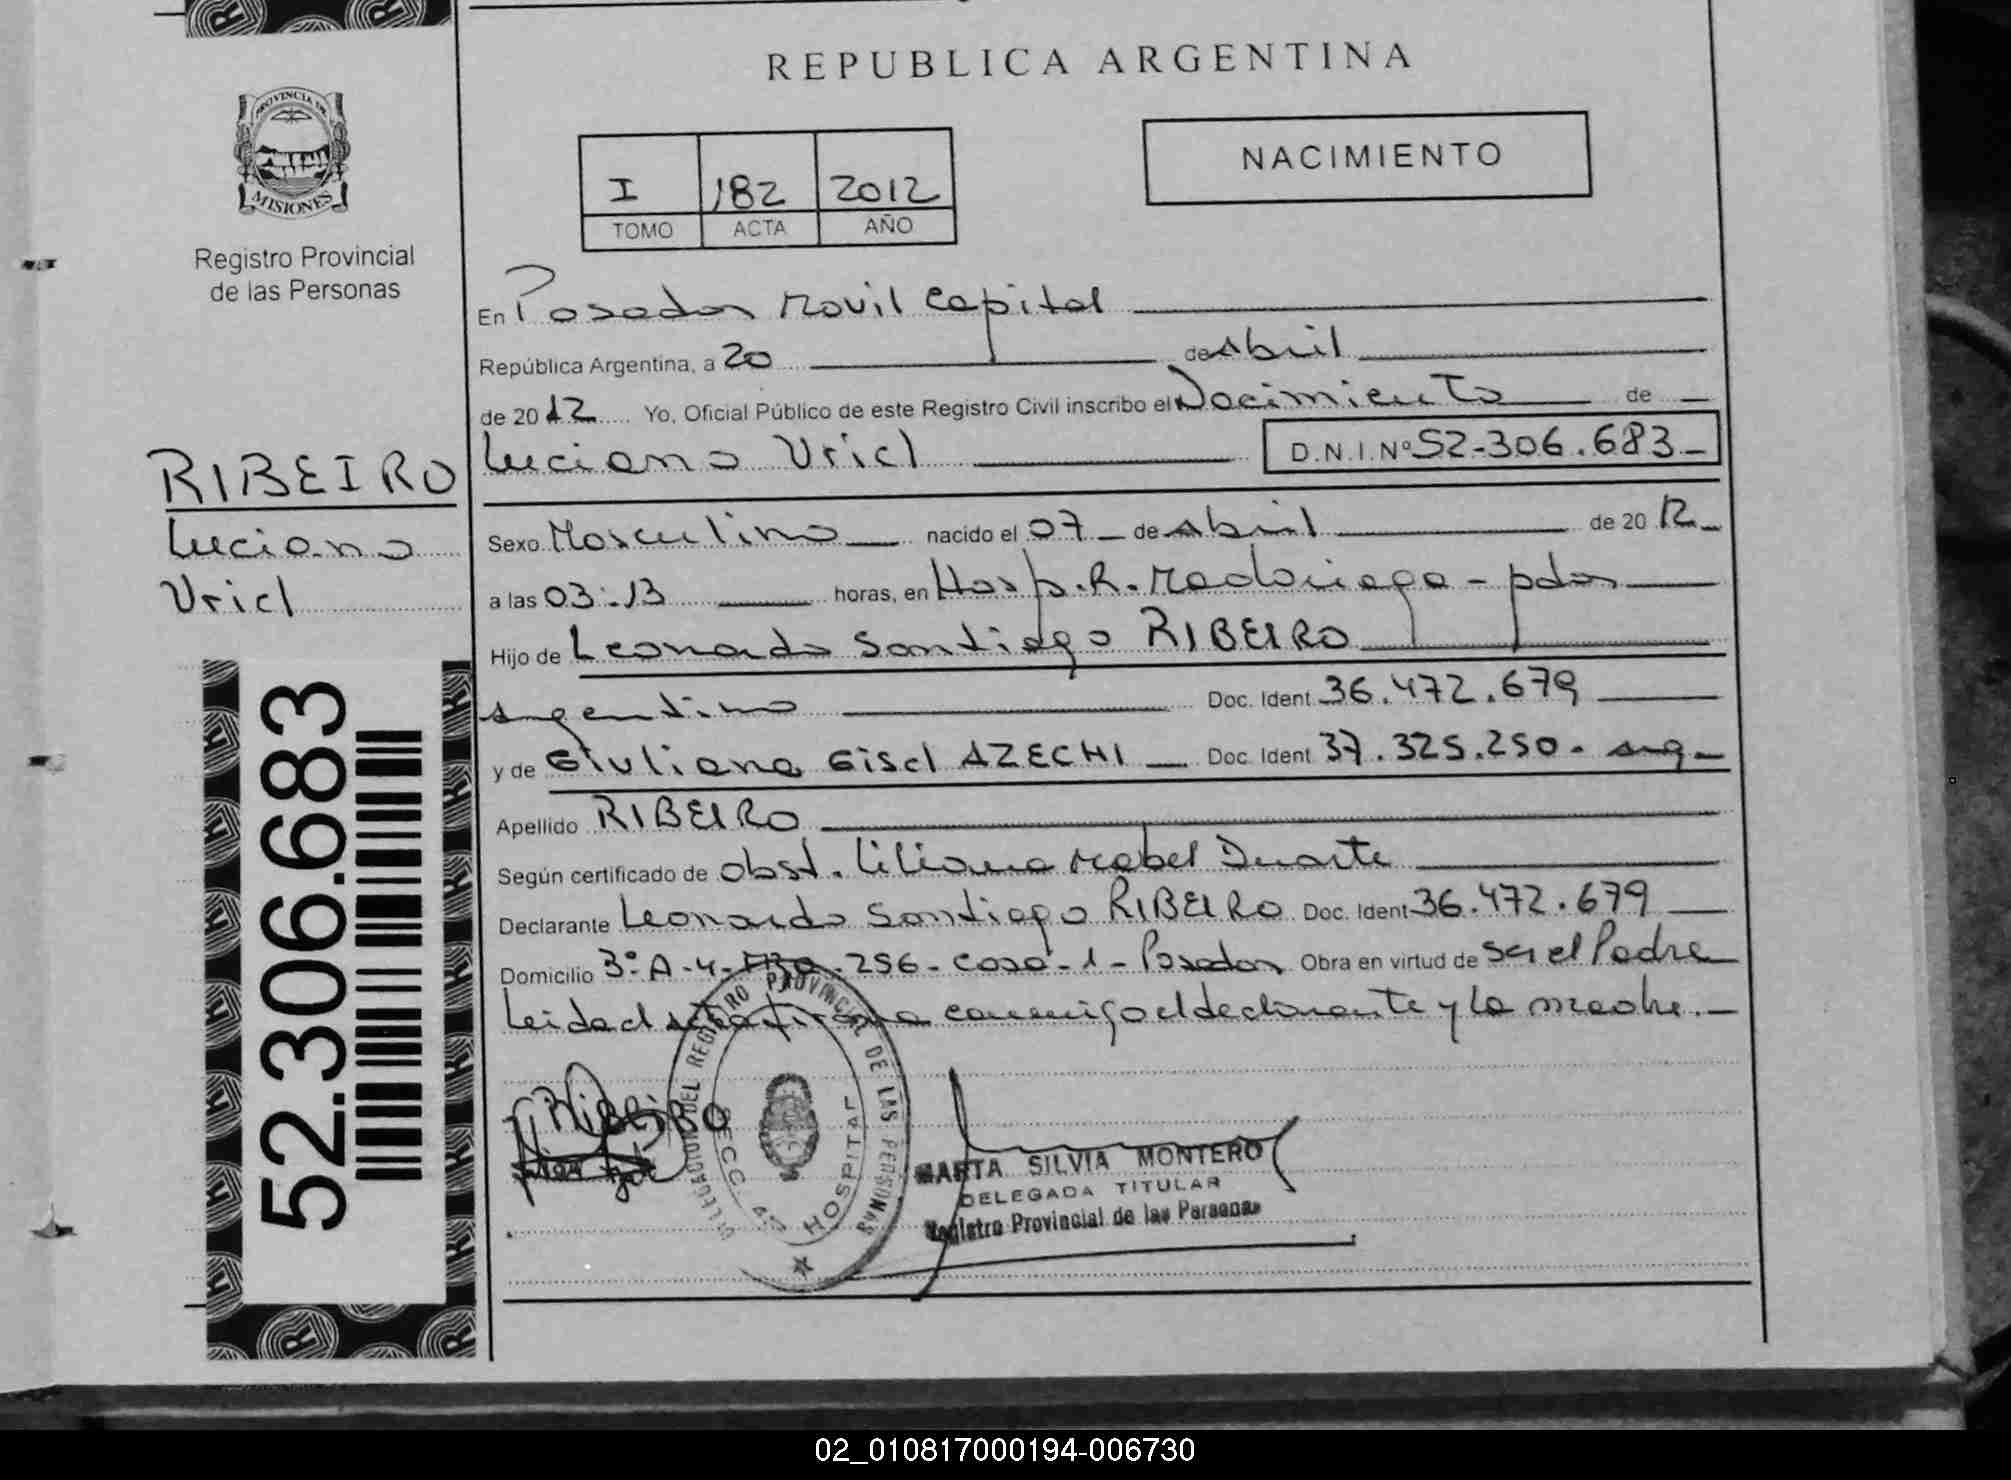 REPUBLICA ARGENTINA
PROVINCIA DE
MISIONES
Registro Provincial
de las Personas
NACIMIENTO
I 182 2012
TOMO ACTA AÑO
En Posadas Movil Capital
República Argentina, a 20 de Abril
de 2012 Yo, Oficial Público de este Registro Civil inscribo el Nacimiento de
Luciano Uriel D.N.I.Nº 52-306.683
RIBEIRO
Luciano
Uriel
Sexo Masculino nacido el 07 de Abril de 2012
a las 03:13 horas, en Hosp. R. Madariaga - pdas
Hijo de Leonardo Santiago RIBEIRO
argentino Doc. Ident 36.472.679
y de Giuliana Gisel AZECHI Doc. Ident 37.325.250 - arg
Apellido RIBEIRO
Según certificado de obst. Liliana Mabel Duarte
Declarante Leonardo Santiago RIBEIRO Doc. Ident 36.472.679
Domicilio 3º A-4- 256- casa-1- Posadas Obra en virtud de ser el Padre
Leida el acta firma conmigo el declarante y la madre.
52.306.683
Ribeiro
DELEGACION DEL REGISTRO PROVINCIAL DE LAS PERSONAS
SECC HOSPITAL
MARTA SILVIA MONTERO
DELEGADA TITULAR
Registro Provincial de las Personas
02_010817000194-006730